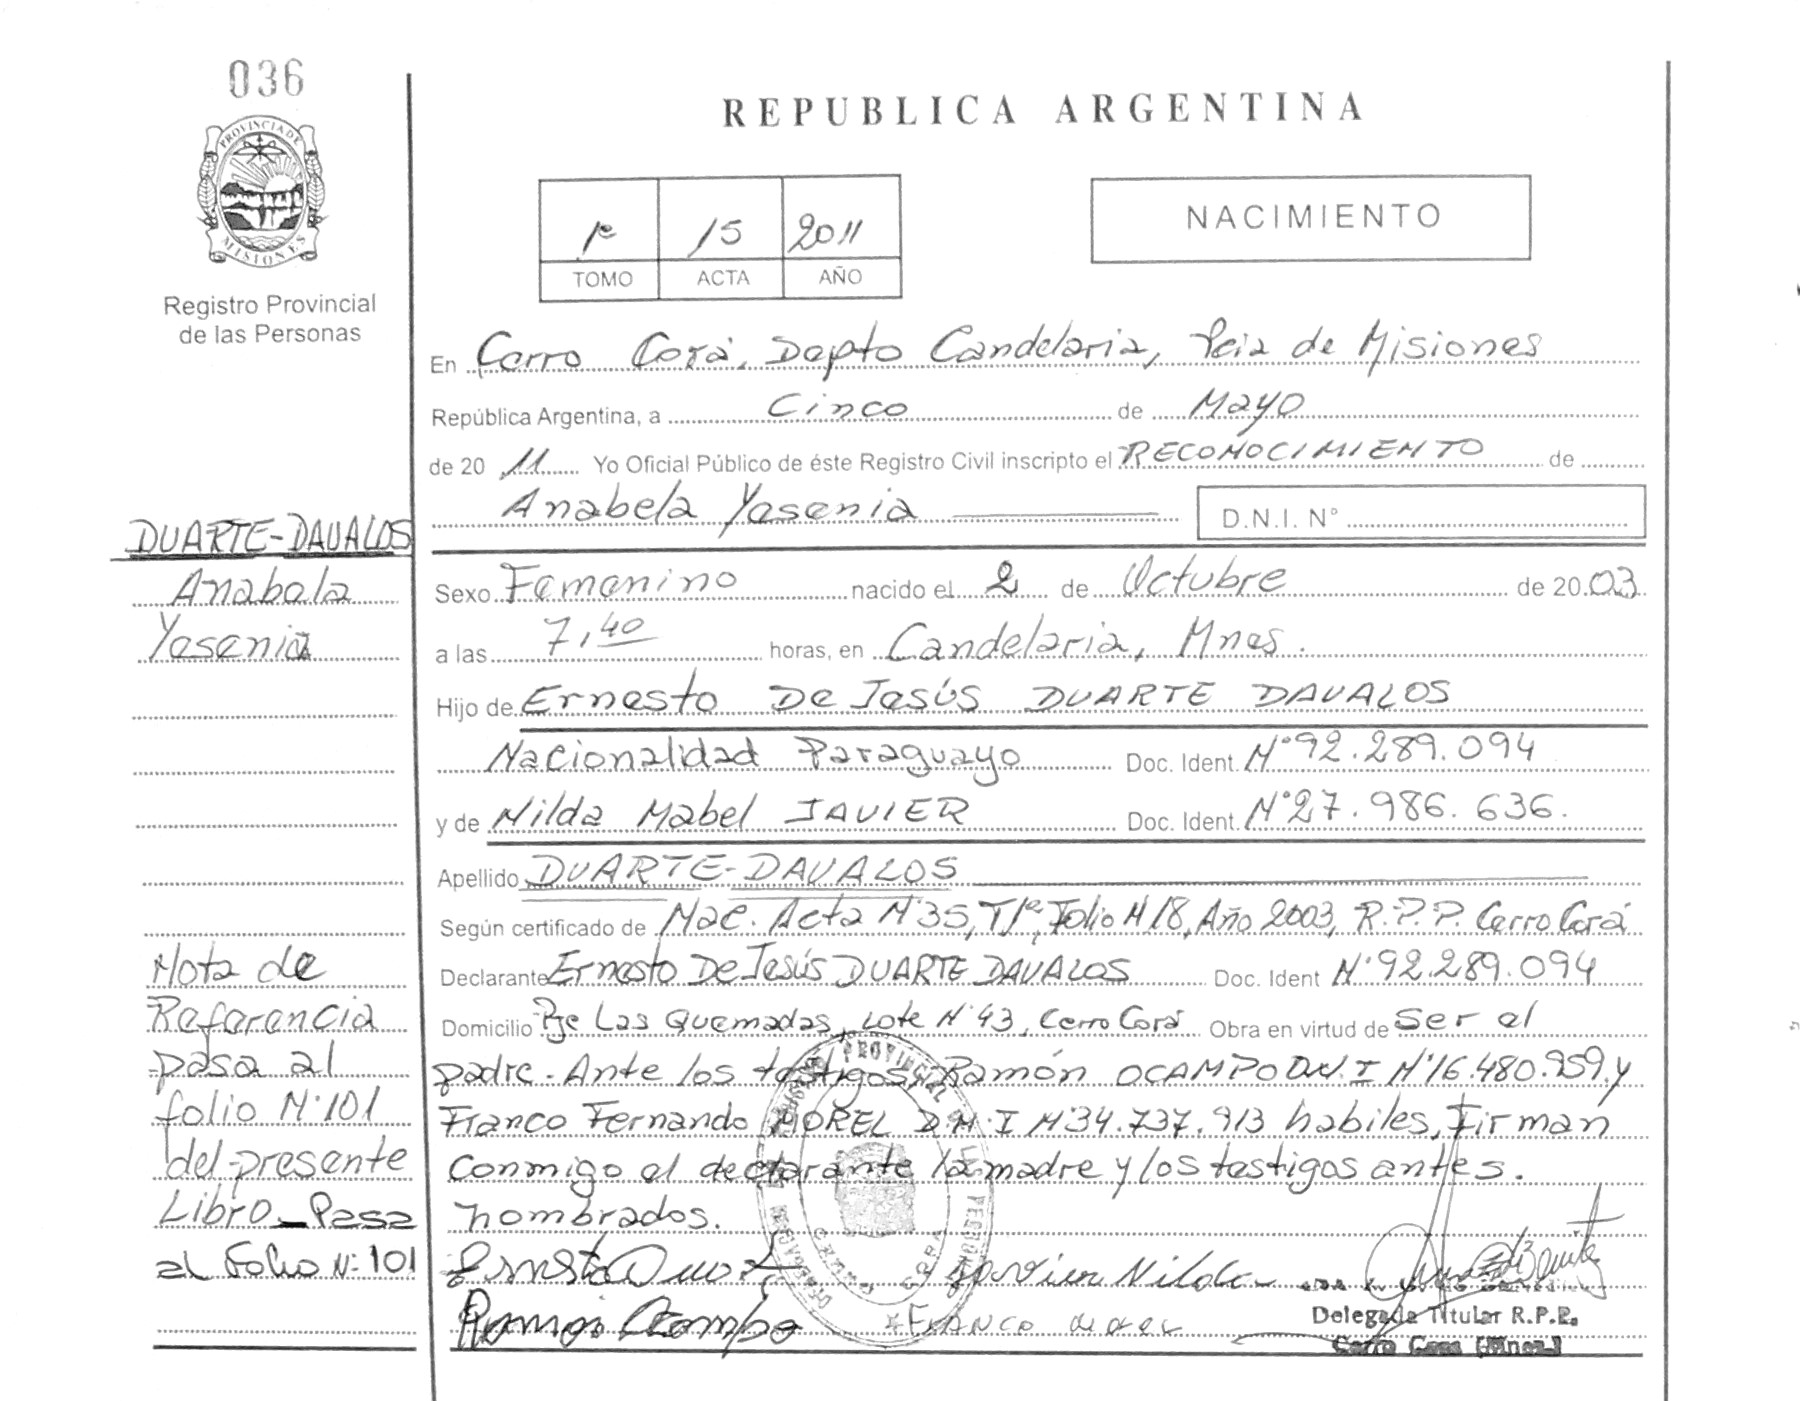 036
REPUBLICA ARGENTINA
PROVINCIA DE
MISIONES
Registro Provincial
de las Personas
1º 15 2011
TOMO ACTA AÑO
NACIMIENTO
En Cerro Corá, Depto Candelaria, Pcia de Misiones
República Argentina, a Cinco de Mayo
de 20 11 Yo Oficial Público de éste Registro Civil inscripto el RECONOCIMIENTO de
Anabela Yesenia
D.N.I. Nº
DUARTE-DAVALOS
Anabela
Yesenia
Sexo Femenino nacido el 2 de Octubre de 20 03
a las 7,40 horas, en Candelaria, Mnes.
Hijo de Ernesto De Jesús DUARTE DAVALOS
Nacionalidad Paraguayo Doc. Ident. Nº 92.289.094
y de Nilda Mabel JAVIER Doc. Ident. Nº 27.986.636.
Apellido DUARTE-DAVALOS
Según certificado de Nac. Acta Nº 35, T/1º, Folio N 18, Año 2003, R.P.P. Cerro Corá
Declarante Ernesto De Jesús DUARTE DAVALOS Doc. Ident Nº 92.289.094
Domicilio Pje Las Quemadas, Lote Nº 43, Cerro Corá Obra en virtud de Ser el
padre. Ante los testigos, Ramón OCAMPO D.N.I Nº 16.480.959 y
Franco Fernando MOREL D.N.I Nº 34.737.913 habiles, Firman
conmigo el declarante la madre y los testigos antes.
nombrados.
Nota de
Referencia
pasa al
folio Nº 101
del presente
Libro_Pasa
al folio Nº 101
Javier Nilda
Ramon Ocampo
Franco
Delegada Titular R.P.P.
Cerro Cora (Mnes.)